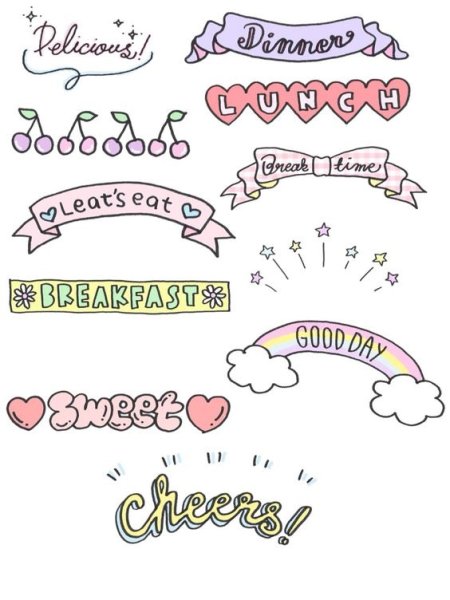 Delicious!
Dinner
LUNCH
Break time
Leat's eat
BREAKFAST
GOOD DAY
sweet
cheers!